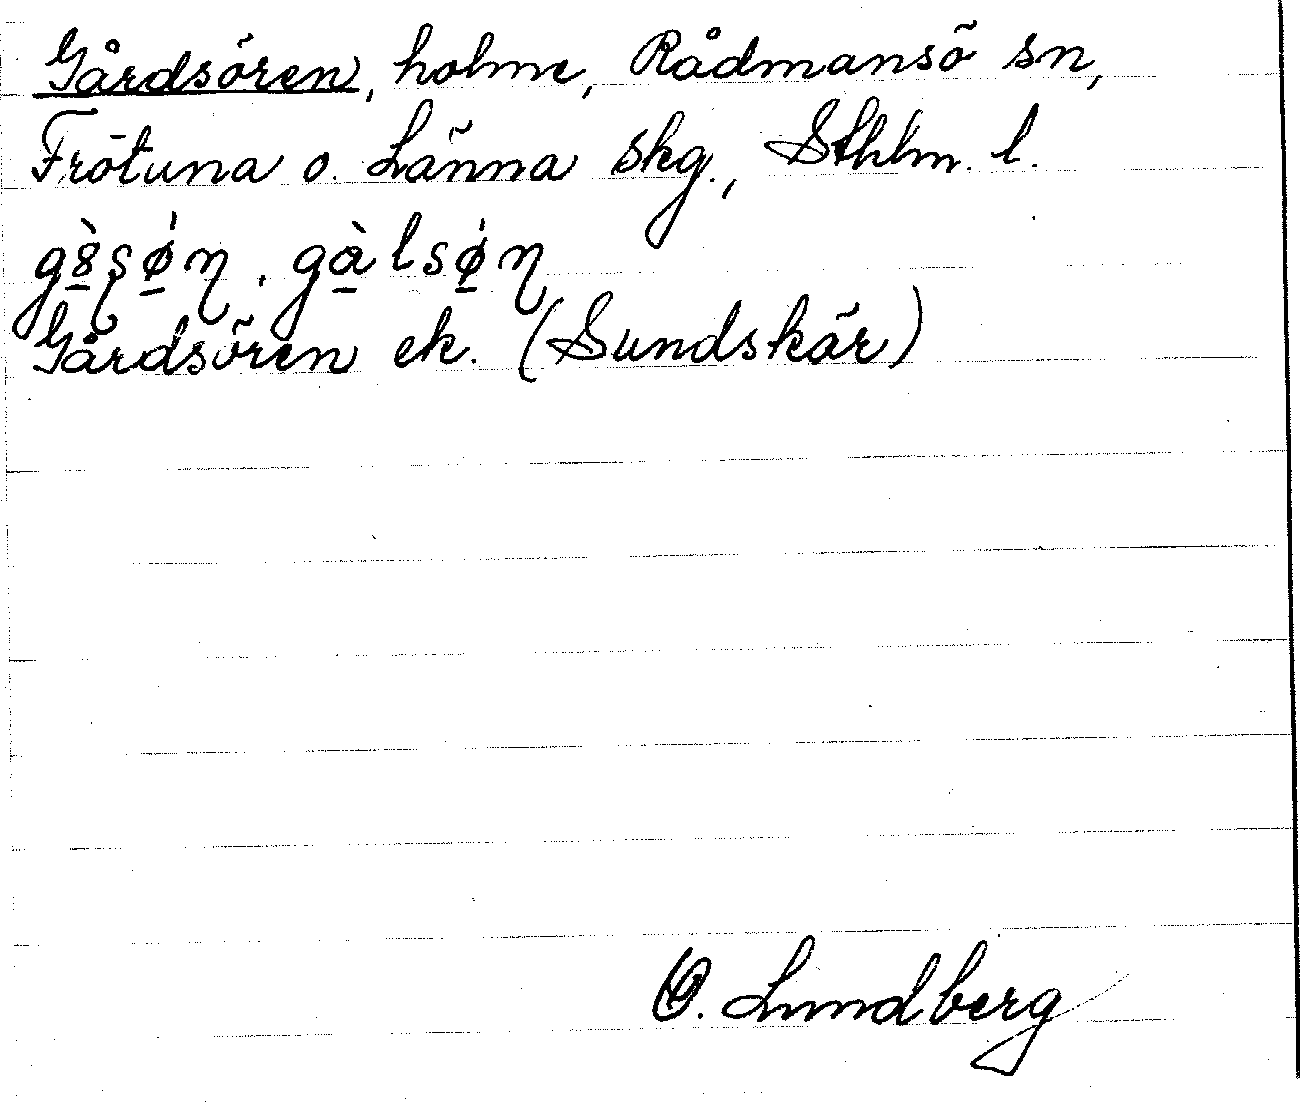 Gårdsören, holme, Rådmansö sn,
Frötuna o. Länna skg., Sthlm. l.
Gårdsören ek. (Sundskär)
O. Lundberg